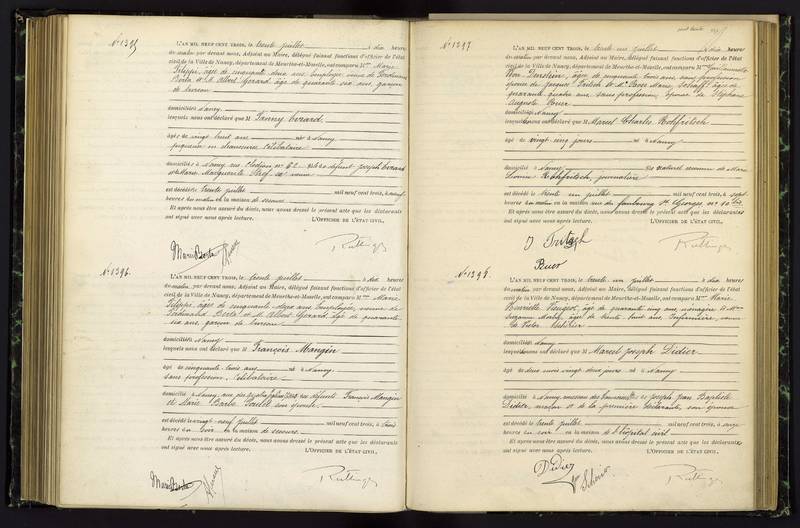 N° 1395
L'AN MIL NEUF CENT TROIS, le trente juillet à dix heures
du matin par devant nous, Adjoint au Maire, délégué faisant fonctions d'officier de l'état
civil de la Ville de Nancy, département de Meurthe-et-Moselle, ont comparu Mme Marie
Filippi, âgée de cinquante deux ans, employée, veuve de Ferdinand
Berta et M. Albert Gérard, âgé de quarante six ans, garçon
de bureau
domiciliés à Nancy
lesquels nous ont déclaré que M Fanny Cerard
âgée de vingt huit ans née à Nancy
piqueuse en chaussures célibataire
domiciliée à Nancy rue n° 62 fille de défunt Joseph Cerard
et Marie Marguerite sa veuve
est décédée le trente juillet mil neuf cent trois, à neuf
heures du matin en la maison de secours
Et après nous être assuré du décès, nous avons dressé le présent acte que les déclarants
ont signé avec nous après lecture. L'OFFICIER DE L'ÉTAT CIVIL,
Marie Berta
N° 1396
L'AN MIL NEUF CENT TROIS, le trente juillet à dix heures
du matin par devant nous, Adjoint au Maire, délégué faisant fonctions d'officier de l'état
civil de la Ville de Nancy, département de Meurthe-et-Moselle, ont comparu Mme Marie
Filippi, âgée de cinquante deux ans, employée, veuve de
Ferdinand Berta et M. Albert Gérard, âgé de quarante
six ans, garçon de bureau
domiciliés à Nancy
lesquels nous ont déclaré que M François Mangin
âgé de cinquante trois ans né à Nancy
sans profession, célibataire
domicilié à Nancy, rue des fils des défunts François Mangin
et Marie Barbe son épouse
est décédé le vingt neuf juillet mil neuf cent trois, à trois
heures du soir en la maison de secours
Et après nous être assuré du décès, nous avons dressé le présent acte que les déclarants
ont signé avec nous après lecture. L'OFFICIER DE L'ÉTAT CIVIL,
Marie Berta
N° 1397
L'AN MIL NEUF CENT TROIS, le trente un juillet à dix heures
du matin par devant nous, Adjoint au Maire, délégué faisant fonctions d'officier de l'état
civil de la Ville de Nancy, département de Meurthe-et-Moselle, ont comparu Mme
âgée de cinquante trois ans, sans profession
épouse de Jacques Fritsch et Me Marie âgée de
quarante quatre ans, sans profession, épouse de Stéphane
Auguste
domiciliés à Nancy
lesquelles nous ont déclaré que M Marcel Charles Rohfritsch
âgé de vingt cinq jours né à Nancy
domicilié à Nancy fils naturel reconnu de Marie
Rohfritsch, journalière
est décédé le trente un juillet mil neuf cent trois, à sept
heures du matin en la maison rue du faubourg St Georges n° 10 bis
Et après nous être assuré du décès, nous avons dressé le présent acte que les déclarantes
ont signé avec nous après lecture. L'OFFICIER DE L'ÉTAT CIVIL,
N° 1398
L'AN MIL NEUF CENT TROIS, le trente un juillet à dix heures
du matin par devant nous, Adjoint au Maire, délégué faisant fonctions d'officier de l'état
civil de la Ville de Nancy, département de Meurthe-et-Moselle, ont comparu Mme Marie
Henriette âgée de quarante cinq ans, ménagère et Me
âgée de trente huit ans, infirmière, veuve
de Victor
domiciliées à Nancy
lesquelles nous ont déclaré que M Marcel Joseph Didier
âgé de deux mois vingt deux jours né à Nancy
domicilié à Nancy, fils de Joseph Jean Baptiste
Didier, maçon et de la première déclarante, son épouse
est décédé le trente juillet mil neuf cent trois, à onze
heures du soir en la maison de l'hôpital civil
Et après nous être assuré du décès, nous avons dressé le présent acte que les déclarantes
ont signé avec nous après lecture. L'OFFICIER DE L'ÉTAT CIVIL,
Didier